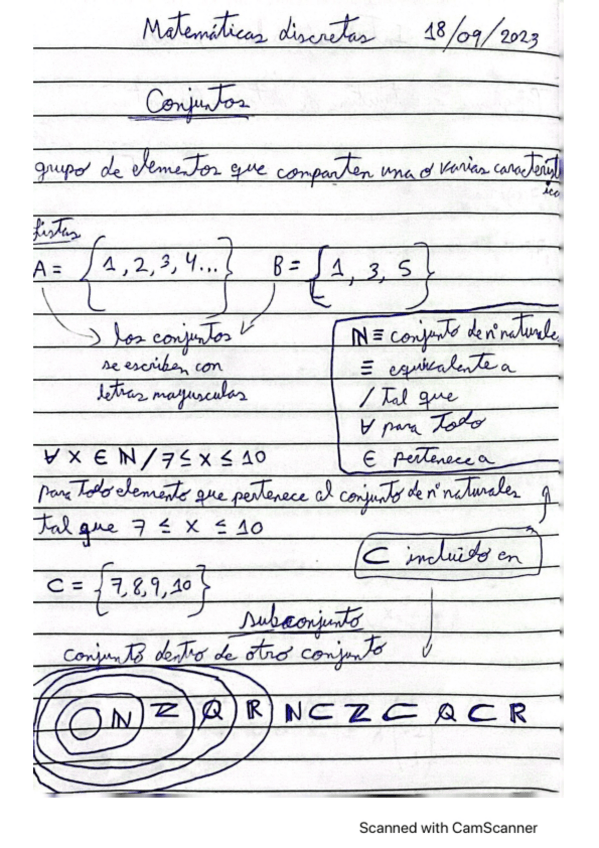 Matemáticas discretas 18/09/2023
Conjuntos
grupo de elementos que comparten una o varias característ
ica
Listas
A = {1, 2, 3, 4...} B = {1, 3, 5}
los conjuntos
se escriben con
letras mayusculas
ℕ ≡ conjunto de nº naturale
≡ equivalente a
/ tal que
∀ para todo
∈ pertenece a
∀ x ∈ ℕ / 7 ≤ x ≤ 10
para todo elemento que pertenece al conjunto de nº naturales
tal que 7 ≤ x ≤ 10
⊂ incluido en
C = {7, 8, 9, 10}
subconjunto
conjunto dentro de otro conjunto
ℕ ℤ ℚ ℝ ℕ ⊂ ℤ ⊂ ℚ ⊂ ℝ
Scanned with CamScanner